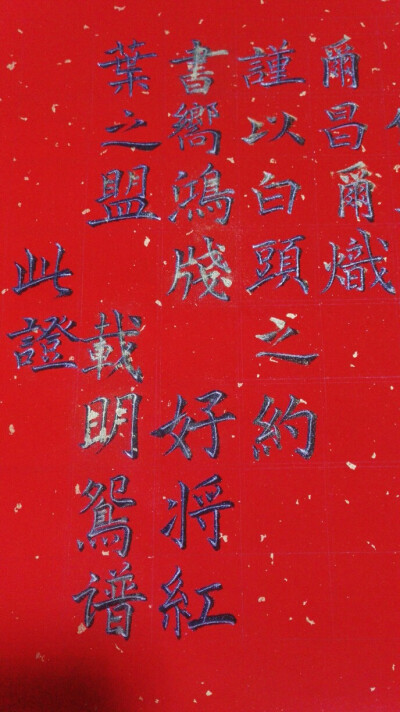 爾昌爾熾
謹以白頭之約
書嚮鴻牋 好將紅
葉之盟 載明鴛谱
此證